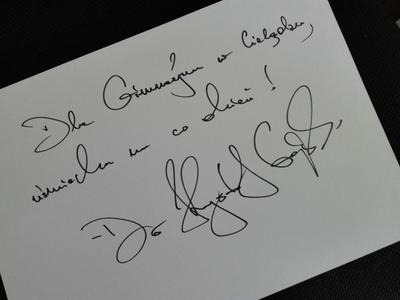 Dla Gimnazjum w Cielądzu,
uśmiechu na co dzień!
- Dr